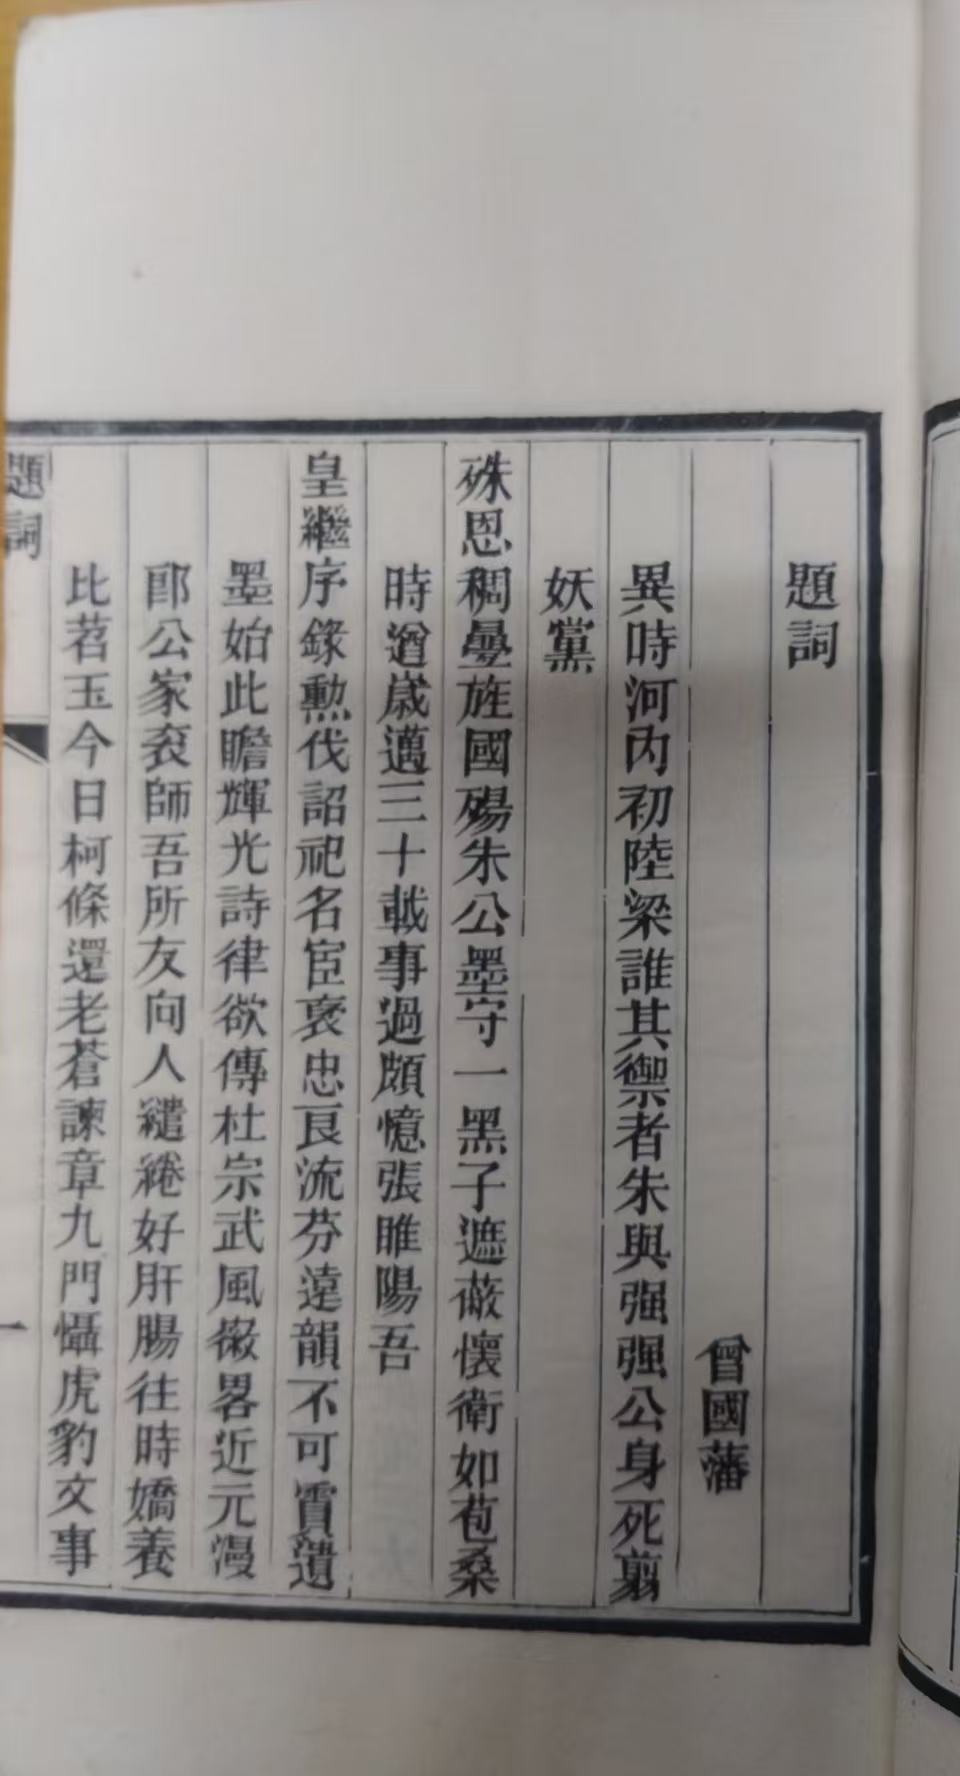 題詞
曾國藩
異時河內初陸梁誰其禦者朱與强强公身死翦
妖黨
殊恩稠疊旌國殤朱公墨守一黑子遮蔽懷衛如苞桑
時遒歲邁三十載事過頗憶張睢陽吾
皇繼序錄勲伐詔祀名宦褒忠良流芬遠韻不可質遺
墨始此瞻輝光詩律欲傳杜宗武風徽畧近元漫
郎公家衮師吾所友向人繾綣好肝腸往時嬌養
比苕玉今日柯條還老蒼諫章九門懾虎豹文事
題詞
一